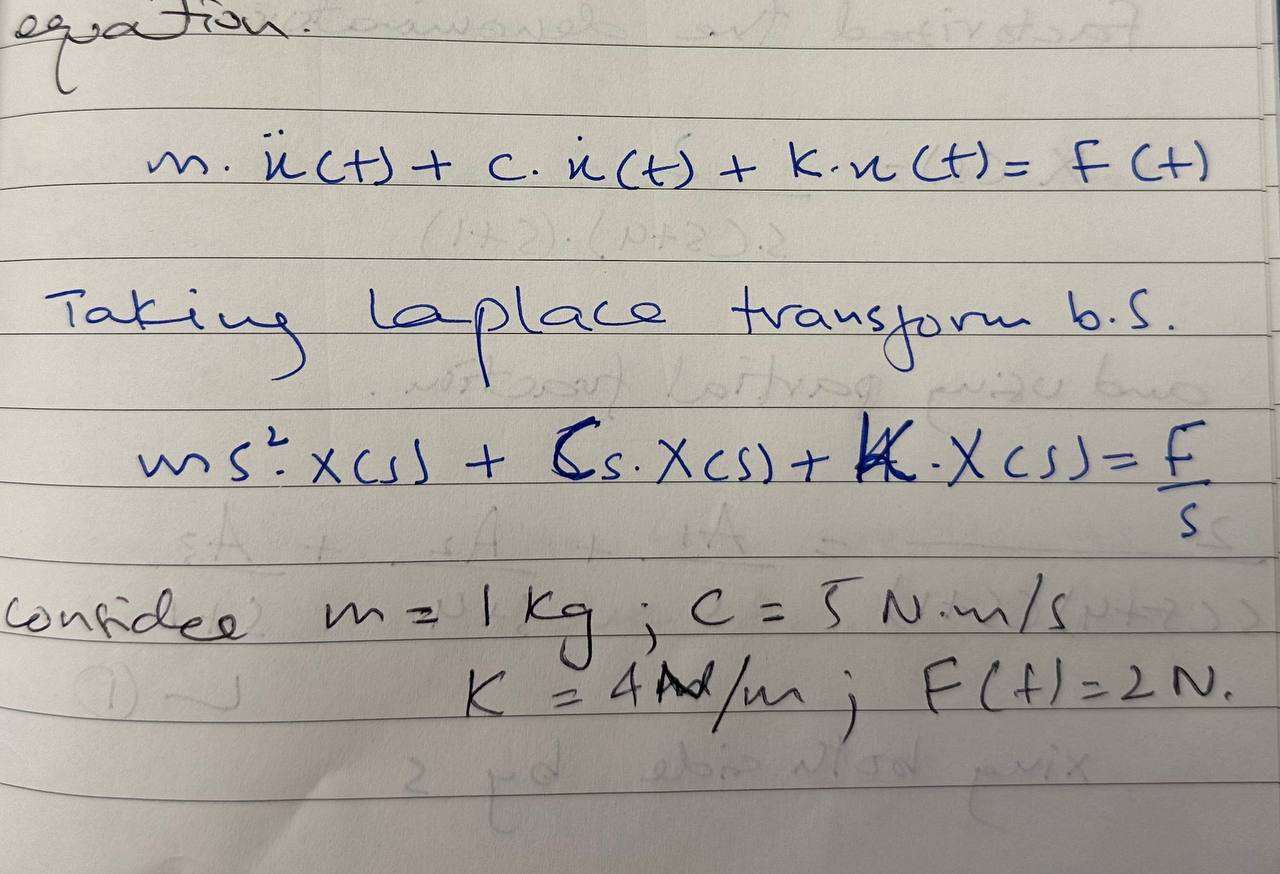 equation.
m. ẍ(t) + c. ẋ(t) + K.x(t) = F(t)
Taking laplace transform b.s.
ms². X(s) + Cs. X(s) + K. X(s) = F/s
consider m = 1 kg ; C = 5 N.m/s
K = 4 N/m ; F(t) = 2 N.